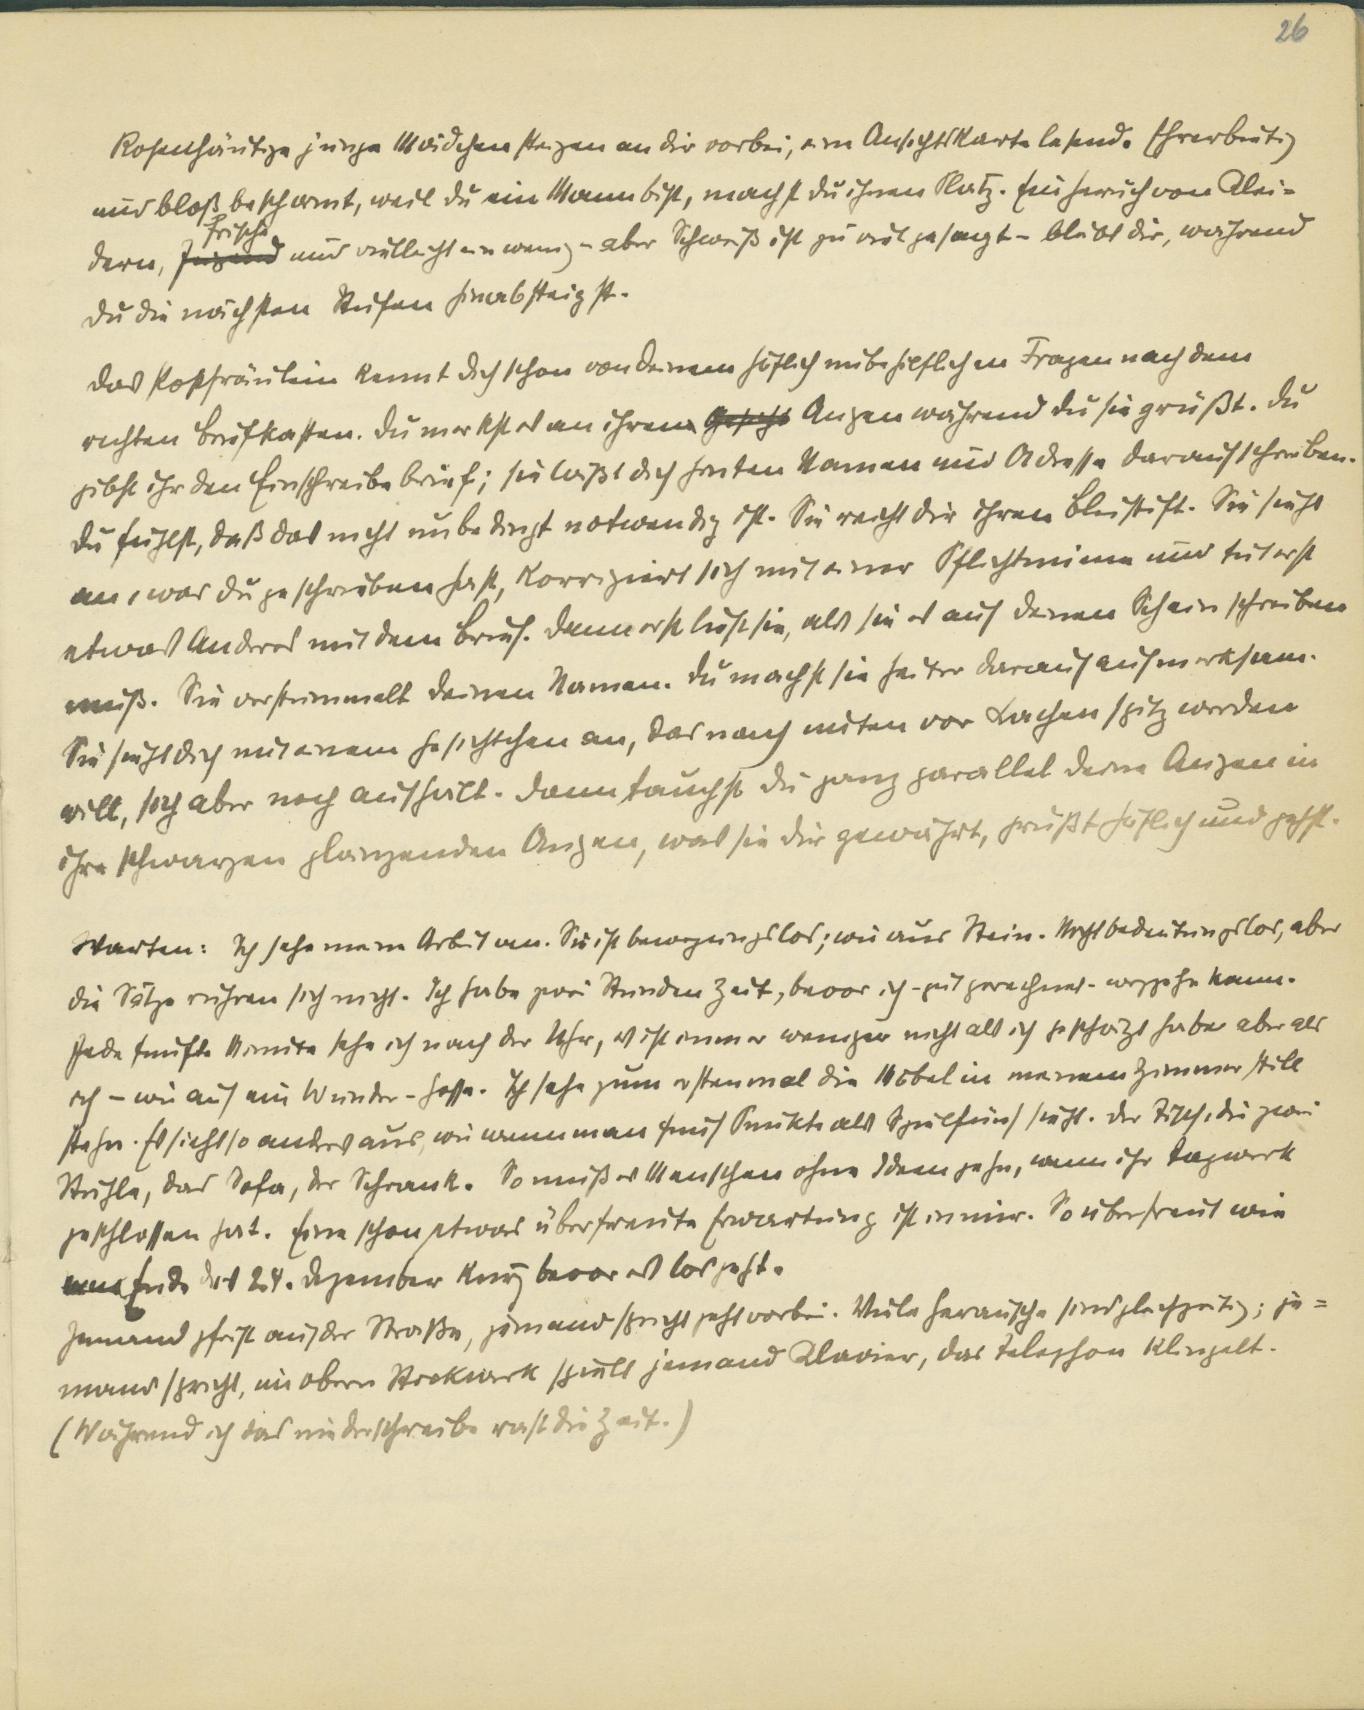 26
Rosenhäutige junge Mädchen steigen an dir vorbei, eine Ansichtskarte lesend. Ehrerbietig
und bloß beschämt, weil du ein Mann bist, machst du ihnen Platz. Ein Geruch von Klei=
frische
dern, Jugend und vielleicht ein wenig – aber Schweiß ist zu viel gesagt – bleibt dir, während
du die nächsten Stufen hinabsteigst.
Das Postfräulein kennt dich schon von deinem höflich unbehilflichen Fragen nach dem
rechten Briefkasten. Du merkst es an ihren Gesicht Augen während du sie grüßt. Du
gibst ihr den Einschreibebrief; sie läßt dich Namen und Adresse darauf schreiben.
Du fühlst, daß das nicht unbedingt notwendig ist. Sie reicht dir ihren Bleistift. Sie sieht
an, was du geschrieben hast, korrigiert sich mit einer Pflichtmiene und tut erst
etwas Anderes mit dem Brief. Dann erst liest sie, als sie es auf deinen Schein schreiben
muß. Sie verstümmelt deinen Namen. Du machst sie heiter darauf aufmerksam.
Sie sieht dich mit einem Gesichtchen an, das nach unten vor Lachen spitz werden
will, sich aber noch aufhält. Dann tauchst du ganz parallel deine Augen in
ihre schwarzen glänzenden Augen, was sie dir gewährt, grüßt höflich und gehst.
Warten: Ich sehe meine Arbeit an. Sie ist bewegungslos; wie aus Stein. Nicht bedeutungslos, aber
die Sätze rühren sich nicht. Ich habe zwei Stunden Zeit, bevor ich – gut gerechnet – weggehn kann.
Jede fünfte Minute sehe ich nach der Uhr, es ist immer weniger nicht als ich geschätzt habe aber als
ich – wie auf ein Wunder – hoffe. Ich sehe zum erstenmal die Möbel in meinem Zimmer still
stehn. Es sieht so anders aus, wie wenn man fünf Punkte als Spielfünf sieht. Der Tisch, die zwei
Stühle, das Sofa, der Schrank. So muß es Menschen ohne Ideen gehn, wenn ihr Tagwerk
geschlossen hat. Eine schon etwas überfreute Erwartung ist in mir. So überfreut wie
Ende des 24. Dezember kurz bevor es losgeht.
Jemand pfeift auf der Straße, jemand spricht geht vorbei. Viele Geräusche sind gleichzeitig; je=
mand spricht, im obern Stockwerk spielt jemand Klavier, das Telephon klingelt.
(Während ich das niederschreibe rast die Zeit.)